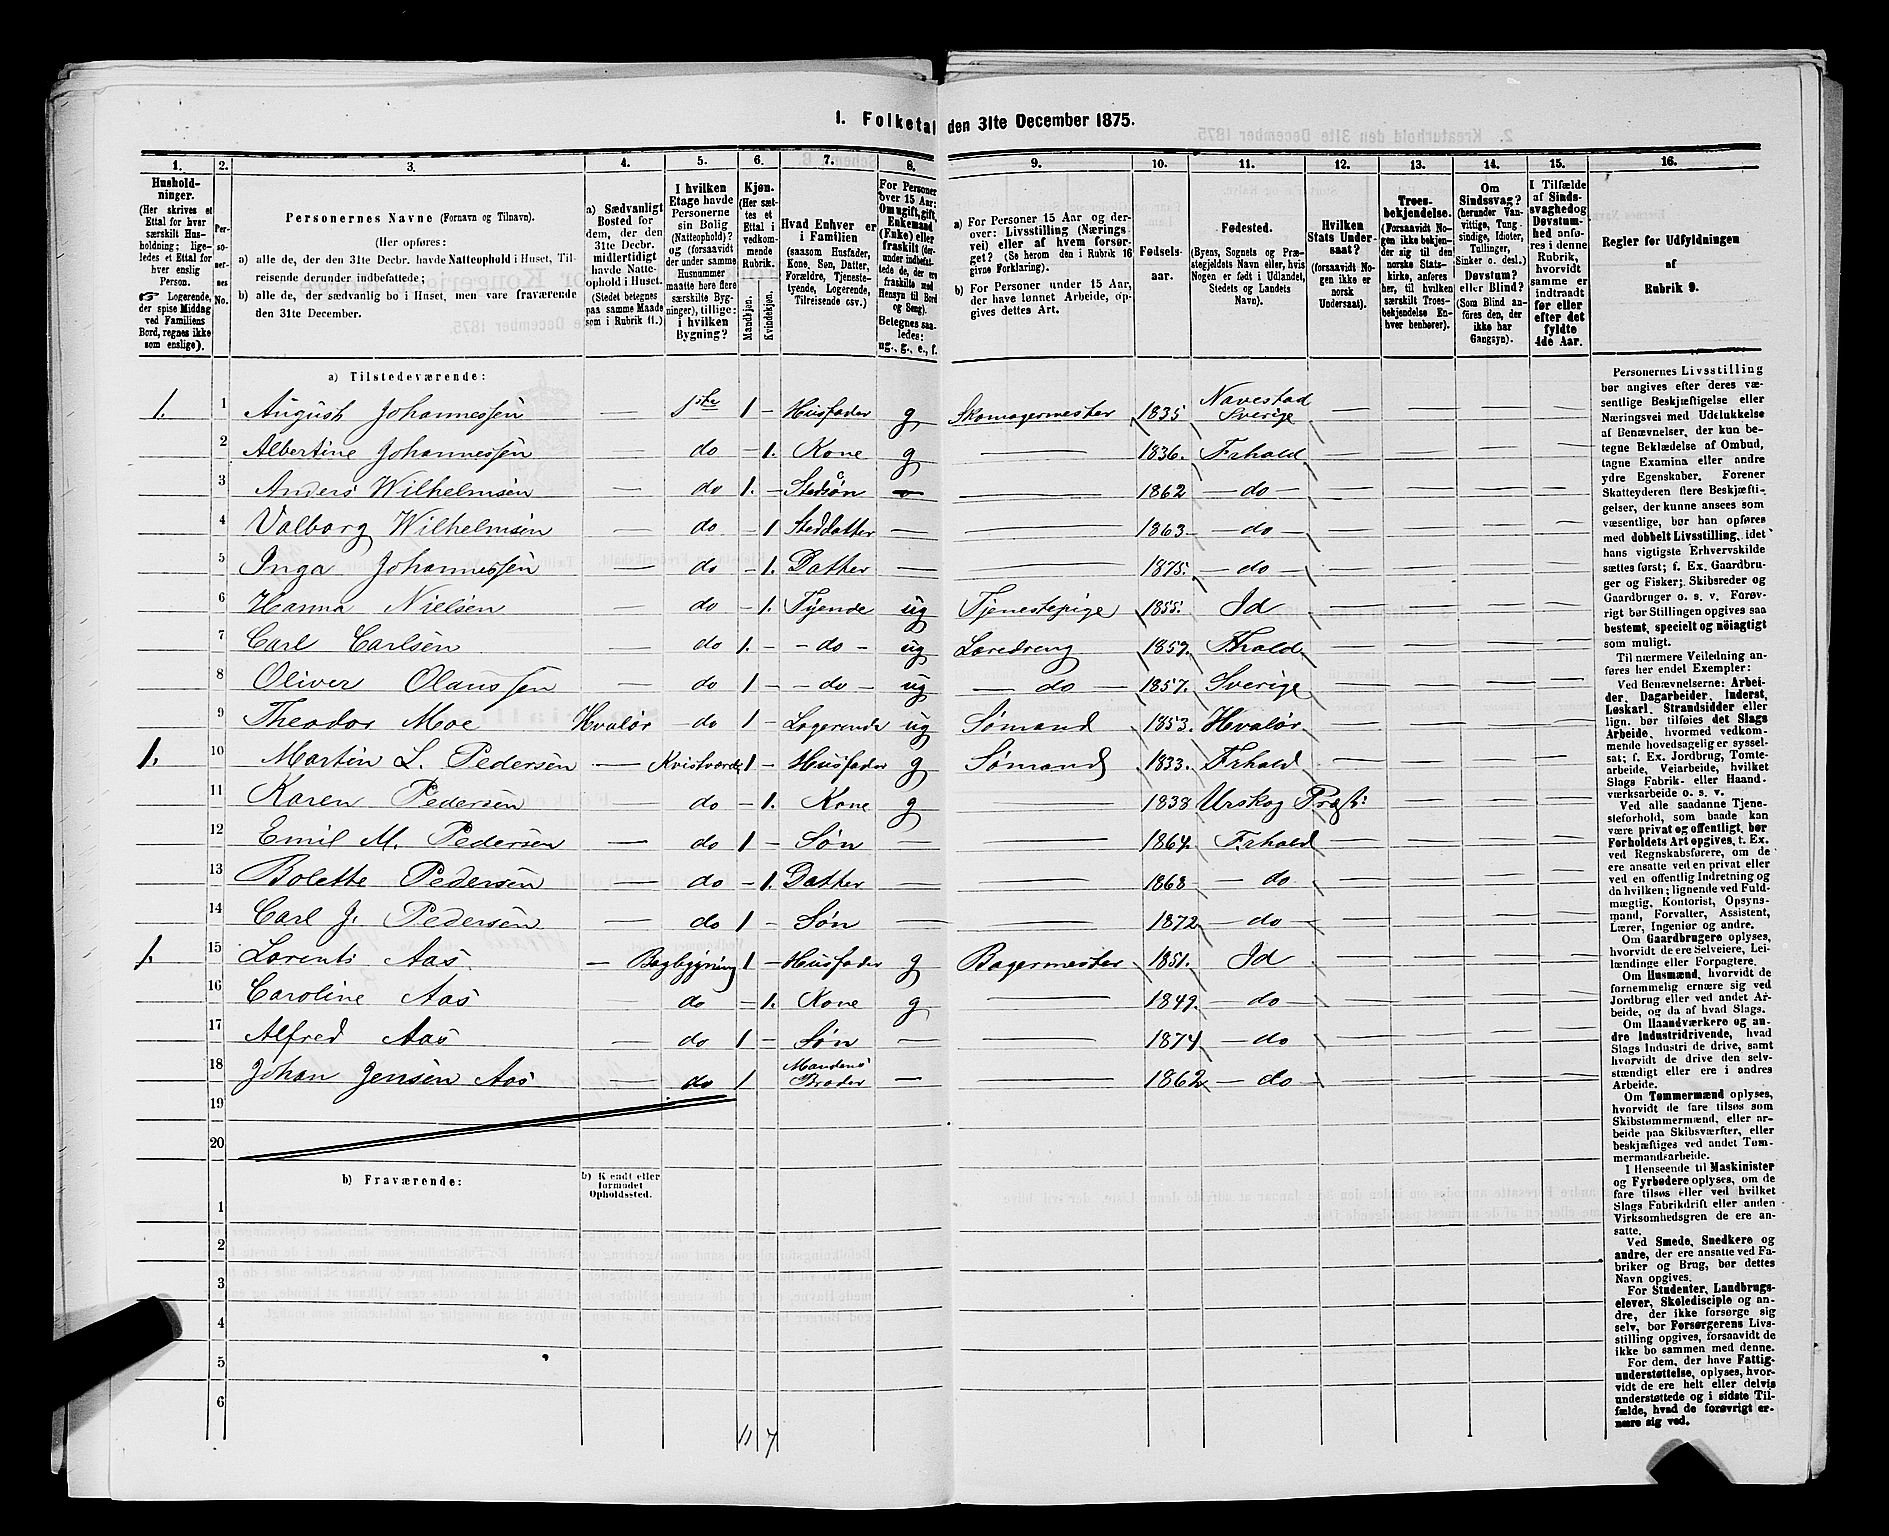 1. Folketal den 31te December 1875.
1. 2. 3. 4. 5. 6. 7. 8. 9. 10. 11. 12. 13. 14. 15. 16.
Hushold-
ninger.
(Her skrives et
Ettal for hver
særskilt Hus-
holdning; lige-
ledes et Ettal for
hver enslig
Person.
☞ Logerende,
der spise Middag
ved Familiens
Bord, regnes ikke
som enslige).
Per-
so-
ner-
nes
No.
Personernes Navne (Fornavn og Tilnavn).
(Her opføres:
a) alle de, der den 31te Decbr. havde Natteophold i Huset, Til-
reisende derunder indbefattede;
b) alle de, der sædvanlig bo i Huset, men vare fraværende
den 31te December.
a) Sædvanligt
Bosted for
dem, der den
31te Decbr.
midlertidigt
havde Natte-
ophold i Huset.
(Stedet betegnes
paa samme Maade
som i Rubrik 11.)
I hvilken
Etage havde
Personerne
sin Bolig
(Natteophold)?
og (forsaavidt
der under samme
Husnummer
maatte høre flere
særskilte Byg-
ninger), tillige:
i hvilken
Bygning?
Kjøn.
(Her sæt-
tes et
Ettal i
vedkom-
mende
Rubrik.
Mandkjøn.
Kvindekjøn.
Hvad Enhver er
i Familien
(saasom Husfader,
Kone, Søn, Datter,
Forældre, Tjeneste-
tyende, Logerende,
Tilreisende osv.)
For Personer
over 15 Aar:
Om ugift, gift,
Enkemand
(Enke) eller
fraskilt (der-
under indbefat-
tede de, der ere
fraskilte med
Hensyn til Bord
og Seng).
Betegnes saa-
ledes:
ug., g., e., f.
a) For Personer 15 Aar og der-
over: Livsstilling (Nærings-
vei) eller af hvem forsør-
get? (Se herom den i Rubrik 16
givne Forklaring).
b) For Personer under 15 Aar,
der have lønnet Arbeide, op-
gives dettes Art.
Fødsels-
aar.
Fødested.
(Byens, Sognets og Præ-
stegjeldets Navn eller, hvis
Nogen er født i Udlandet,
Stedets og Landets
Navn).
Hvilken
Stats Under-
saat?
(forsaavidt No-
gen ikke er
norsk
Undersaat).
Troes-
bekjendelse.
(Forsaavidt No-
gen ikke bekjen-
der sig til den
norske Stats-
kirke, anføres
her, til hvilken
særskilt Troes-
bekjendelse En-
hver henhører).
Om
Sindssvag?
(herunder Van-
vittige, Tung-
sindige, Idioter,
Tullinger,
Sinker o. desl.)
Døvstum?
eller Blind?
(Som Blind an-
føres den, der
ikke har
Gangsyn).
I Tilfælde
af Sinds-
svaghed og
Døvstum-
hed anføres
i denne
Rubrik,
hvorvidt
samme er
indtraadt
før eller
efter det
fyldte
4de Aar.
Regler for Udfyldningen
af
Rubrik 9.
a) Tilstedeværende:
1. 1 August Johannessen — 1ste 1 — Husfader g Skomagermester 1835 Navestad Sverige — — — —
2 Albertine Johannessen — do — 1. Kone g — 1836. Frhald — — — —
3 Anders Wilhelmsen — do 1. — Stedsøn — — 1862 — do — — — — —
4 Valborg Wilhelmsen — do — 1 Steddatter — — 1863. — do — — — — —
5 Inga Johannessen — do — 1. Datter — — 1875. — do — — — — —
6 Hanna Nielsen — do — 1. Tyende ug Tjenestepige 1855. Id — — — —
7 Carl Carlsen — do 1. — — do — ug Læredreng 1859. Fhald — — — —
8 Oliver Olaussen — do 1 — — do — ug — do — 1857. Sverige — — — —
9 Theodor Moe Hvalør — do 1 — Logerende ug Sømand 1853. Hvalør — — — —
1. 10 Martin L. Pedersen — Kvistværels 1 — Husfader g Sømand 1833. Frhald — — — —
11 Karen Pedersen — do — 1. Kone g — 1838 Urskog Præst: — — —
12 Emil M. Pedersen — do 1 — Søn — — 1864. Frhald — — — —
13 Bolette Pedersen — do — 1. Datter — — 1868 — do — — — —
14 Carl J. Pedersen — do 1 — Søn — — 1872 — do — — — — —
1. 15 Lorents Aas — Bagbygning 1 — Husfader g Bagermester 1851. Id — — — —
16 Caroline Aas — do — 1. Kone g — 1849. — do — — — — —
17 Alfred Aas — do 1 — Søn — — 1874 — do — — — — —
18 Johan Jensen Aas — do 1 Mandens Broder — — 1862 — do — — — — —
19
20
b) Fraværende:
b) Kjendt eller
formodet
Opholdssted.
1
2
3
4
5
6
11 7
Personernes Livsstilling
bør angives efter deres væ-
sentlige Beskjæftigelse eller
Næringsvei med Udelukkelse
af Benævnelser, der kun be-
tegne Beklædelse af Ombud,
tagne Examina eller andre
ydre Egenskaber. Forener
Skatteyderen flere Beskjæfti-
gelser, der kunne ansees som
væsentlige, bør han opføres
med dobbelt Livsstilling, idet
hans vigtigste Erhvervskilde
sættes først; f. Ex. Gaardbru-
ger og Fisker; Skibsreder og
Gaardbruger o. s. v. Forøv-
rigt bør Stillingen opgives saa
bestemt, specielt og nøiagtigt
som muligt.
Til nærmere Veiledning an-
føres her endel Exempler:
Ved Benævnelserne: Arbei-
der, Dagarbeider, Inderst,
Løskarl, Strandsidder eller
lign. bør tilføies det Slags
Arbeide, hvormed vedkom-
mende hovedsagelig er syssel-
sat; f. Ex. Jordbrug, Tomte-
arbeide, Veiarbeide, hvilket
Slags Fabrik- eller Haand-
værksarbeide o. s. v.
Ved alle saadanne Tjene-
steforhold, som baade kan
være privat og offentligt, bør
Forholdets Art opgives, t. Ex.
ved Regnskabsførere, om de
ere ansatte ved en privat eller
ved en offentlig Indretning og
da hvilken; lignende ved Fuld-
mægtig, Kontorist, Opsyns-
mand, Forvalter, Assistent,
Lærer, Ingeniør og andre.
Om Gaardbrugere oplyses,
hvorvidt de ere Selveiere, Lei-
lændinge eller Forpagtere.
Om Husmænd, hvorvidt de
fornemmelig ernære sig ved
Jordbrug eller ved andet Ar-
beide, og da af hvad Slags.
Om Haandværkere og an-
dre Industridrivende, hvad
Slags Industri de drive, samt
hvorvidt de drive den selv-
stændigt eller ere i andres
Arbeide.
Om Tømmermænd oplyses,
hvorvidt de fare tilsøs som
Skibstømmermænd, eller ar-
beide paa Skibsværfter, eller
beskjæftiges ved andet Tøm-
mermandsarbeide.
I Henseende til Maskinister
og Fyrbødere oplyses, om de
fare tilsøs eller ved hvilket
Slags Fabrikdrift eller anden
Virksomhedsgren de ere an-
satte.
Ved Smede, Snedkere og
andre, der ere ansatte ved Fa-
briker og Brug, bør dettes
Navn opgives.
For Studenter, Landbrugs-
elever, Skoledisciple og an-
dre, der ikke forsørge sig
selv, bør Forsørgerens Livs-
stilling opgives, forsaavidt de
ikke bo sammen med denne.
For dem, der have Fattig-
understøttelse, oplyses, hvor-
vidt de ere helt eller delvis
understøttede og i sidste Til-
fælde, hvad de forøvrigt er-
nære sig ved.